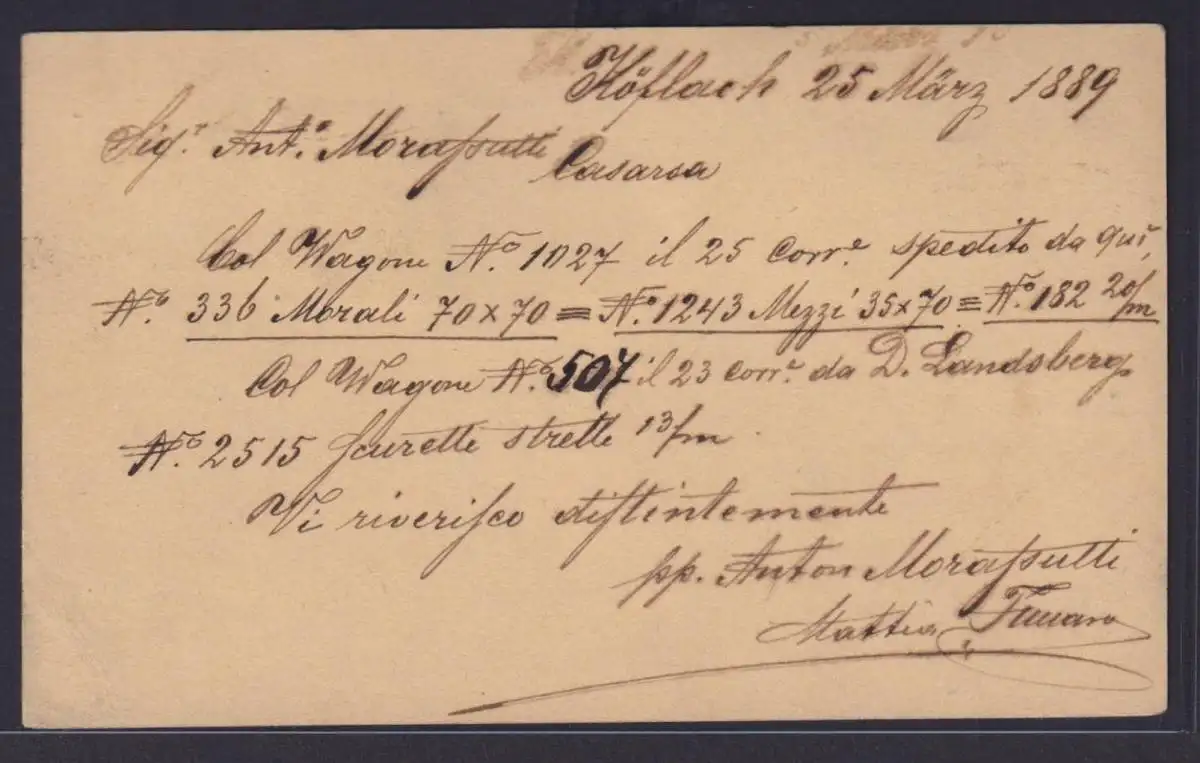 Köflach 25 März 1889
Sigr. Anto. Morassutti
Casarsa
Col Wagone No. 1027 il 25 corre. spedito da qui,
No. 336 Morali 70x70 = No. 1243 Mezzi 35x70 = No. 182 20/m
Col Wagone No. 507 il 23 corre. da D. Landsberg
No. 2515 scurette strette 13/m
Vi riverisco distintemente
pp. Anton Morassutti
Mattia